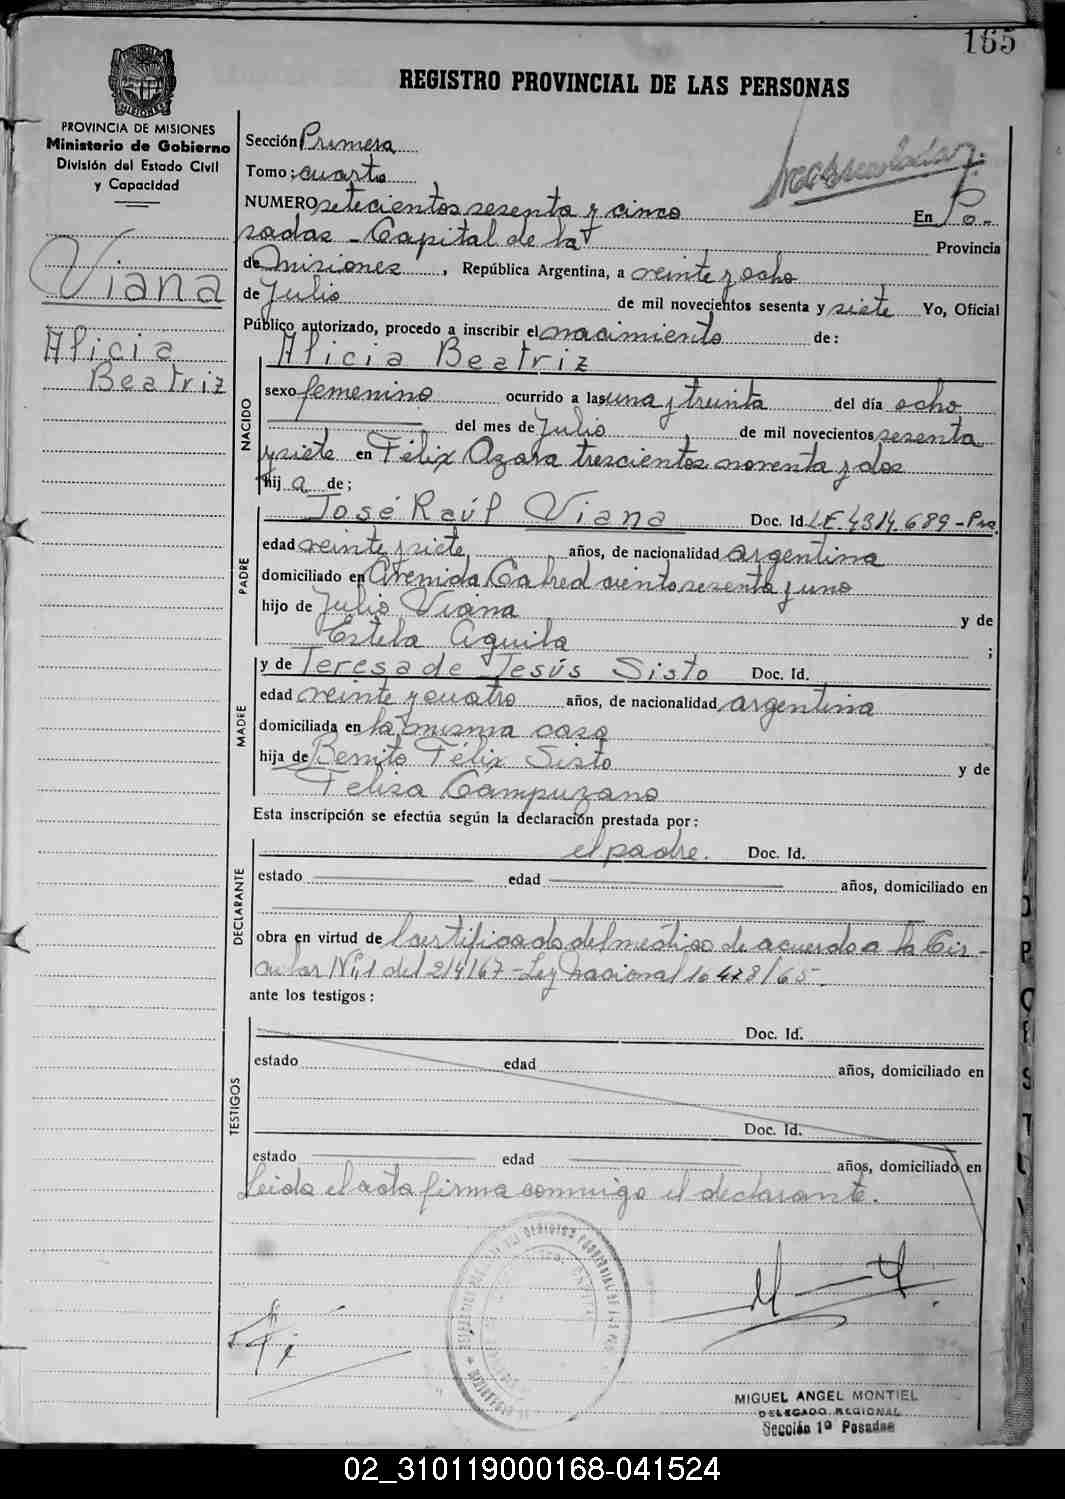 165
REGISTRO PROVINCIAL DE LAS PERSONAS
MISIONES
PROVINCIA DE MISIONES
Ministerio de Gobierno
División del Estado Civil
y Capacidad
Viana
Alicia
Beatriz
Sección Primera
Tomo: cuarto
NUMERO setecientos sesenta y cinco En Po-
sadas - Capital de la Provincia
de Misiones, República Argentina, a veinte y ocho
de Julio de mil novecientos sesenta y siete Yo, Oficial
Público autorizado, procedo a inscribir el nacimiento de:
Alicia Beatriz
NACIDO
sexo femenino ocurrido a las una y treinta del día ocho
del mes de Julio de mil novecientos sesenta
y siete en Félix Azara trescientos noventa y dos
hij a de;
PADRE
José Raúl Viana Doc. Id. L.E. 4314.689 -
edad veinte y siete años, de nacionalidad argentina
domiciliado en Avenida Cabred ciento sesenta y uno
hijo de Julio Viana y de
Estela Aguila ;
MADRE
y de Teresa de Jesús Sisto Doc. Id.
edad veinte y cuatro años, de nacionalidad argentina
domiciliada en la misma casa
hija de Benito Félix Sisto y de
Felisa Campuzano
Esta inscripción se efectúa según la declaración prestada por:
DECLARANTE
el padre. Doc. Id.
estado edad años, domiciliado en
obra en virtud de Certificado del médico de acuerdo a la Cir-
cular Nº 1 del 2/4/67 - Ley nacional 16478/65-.
ante los testigos:
TESTIGOS
Doc. Id.
estado edad años, domiciliado en
Doc. Id.
estado edad años, domiciliado en
Leida el acta firma conmigo el declarante.
MIGUEL ANGEL MONTIEL
DELEGADO REGIONAL
Sección 1ª Posadas
02_310119000168-041524